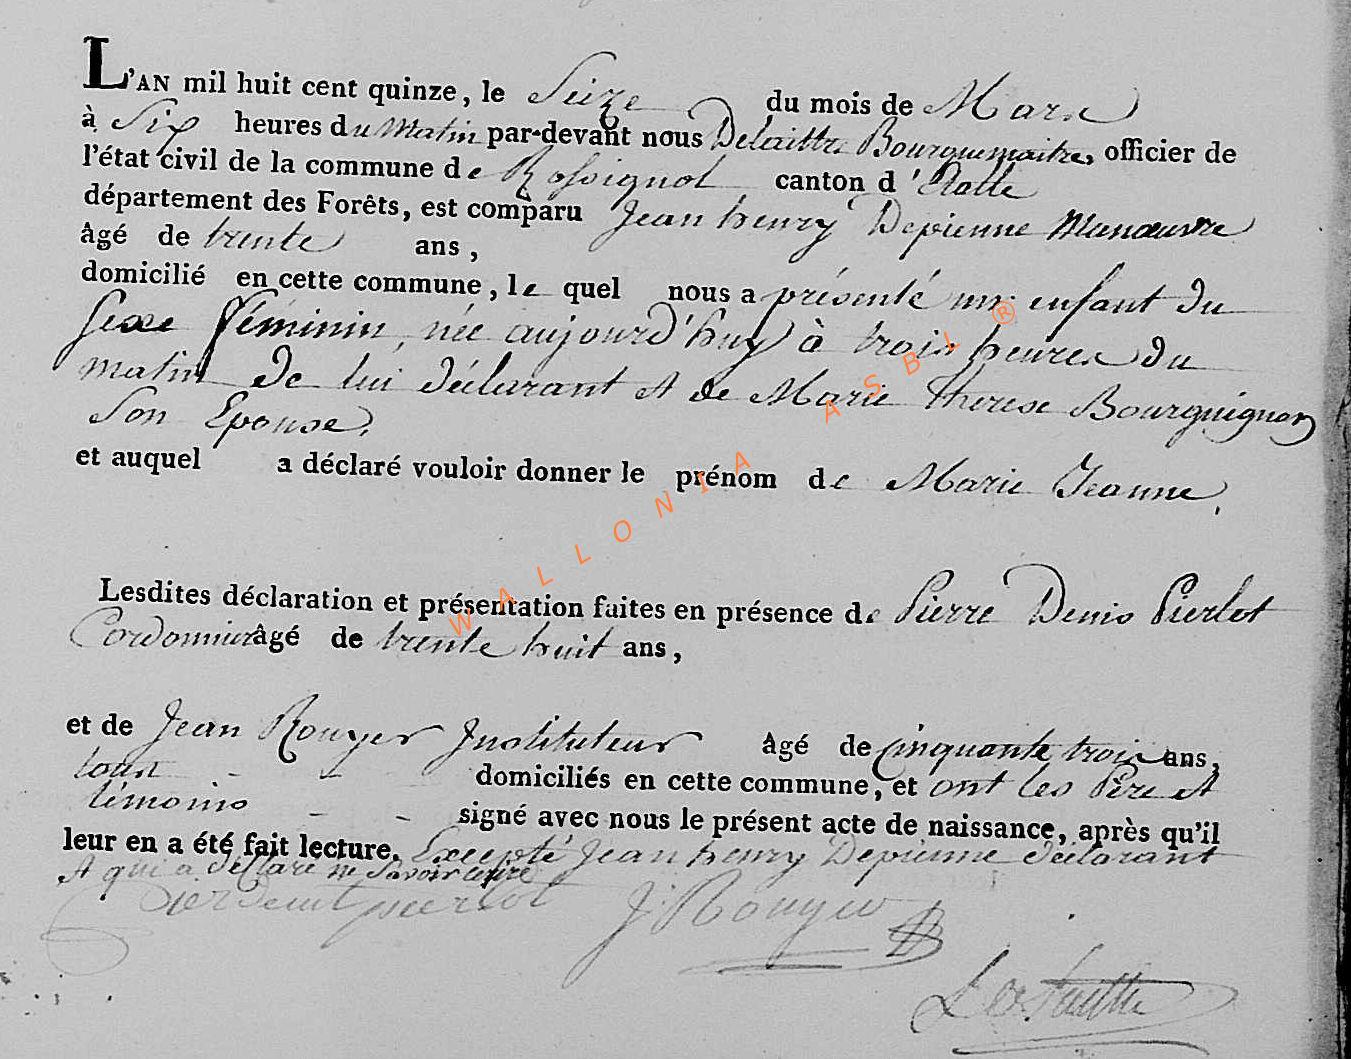 L'AN mil huit cent quinze, le Seize du mois de Mars
à Six heures du Matin par-devant nous Delaittre Bourguemaitre, officier de
l'état civil de la commune de Rossignol canton d'Etalle
département des Forêts, est comparu Jean henry Depienne Manœuvre
âgé de trente ans,
domicilié en cette commune, le quel nous a présenté un enfant du
sexe féminin, née aujourd'huy à trois heures du
matin de lui déclarant et de Marie Therese Bourguignon
Son Epouse,
et auquel a déclaré vouloir donner le prénom de Marie Jeanne,
Lesdites déclaration et présentation faites en présence de Pierre Denis Pierlot
Cordonnier âgé de trente huit ans,
et de Jean Rouyer Instituteur âgé de cinquante trois ans,
tous domiciliés en cette commune, et ont les Père et
témoins signé avec nous le présent acte de naissance, après qu'il
leur en a été fait lecture, Excepté Jean henry Depienne déclarant
et qui a déclaré ne savoir écrire
pierlot J: Rouyer
WALLONIA ASBL ®